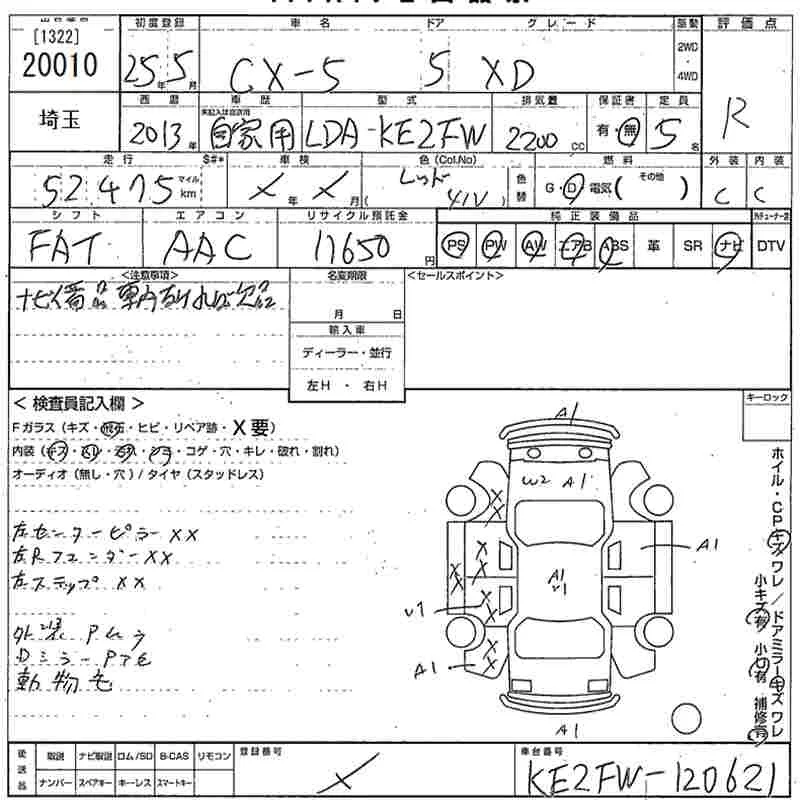 出品番号 初度登録 車名 ドア グレード 駆動 評価点
[1322]
20010 25年 5月 CX-5 5 XD 2WD・4WD R
埼玉
西暦 車歴 型式 排気量 保証書 定員
2013年 未記入は自家用 自家用 LDA-KE2FW 2200cc 有・無 5名
走行 $#* 車検 色(Col.No) 燃料 外装 内装
52,475 マイル km X年 X月 レッド (41V) 色替 G・D・電気( その他 ) C C
シフト エアコン リサイクル預託金 純正装備品
FAT AAC 11650円 PS PW AW エアB ABS 革 SR ナビ DTV
<注意事項> 名変期限 <セールスポイント>
ナビ備品 車内なければ欠品
月 日
輸入車
ディーラー・並行
左H・右H
<検査員記入欄> キーロック
Fガラス(キズ・飛石・ヒビ・リペア跡・X要)
内装(キズ・汚レ・コゲ・穴・キレ・破れ・割れ)
オーディオ(無し・穴)/タイヤ(スタッドレス)
左センターピラーXX
左RフェンダーXX
左ステップXX
外装
Dミラー
動物毛
A1
W2 A1
A1
A1
V1
V1
A1
A1
ホイル・CPキズワレ/ドアミラーキズワレ
小キズ有 小凹有 補修有
後送品 取説 ナビ取説 ロム/SD B-CAS リモコン 登録番号 車台番号
ナンバー スペアキー キーレス スマートキー X KE2FW-120621